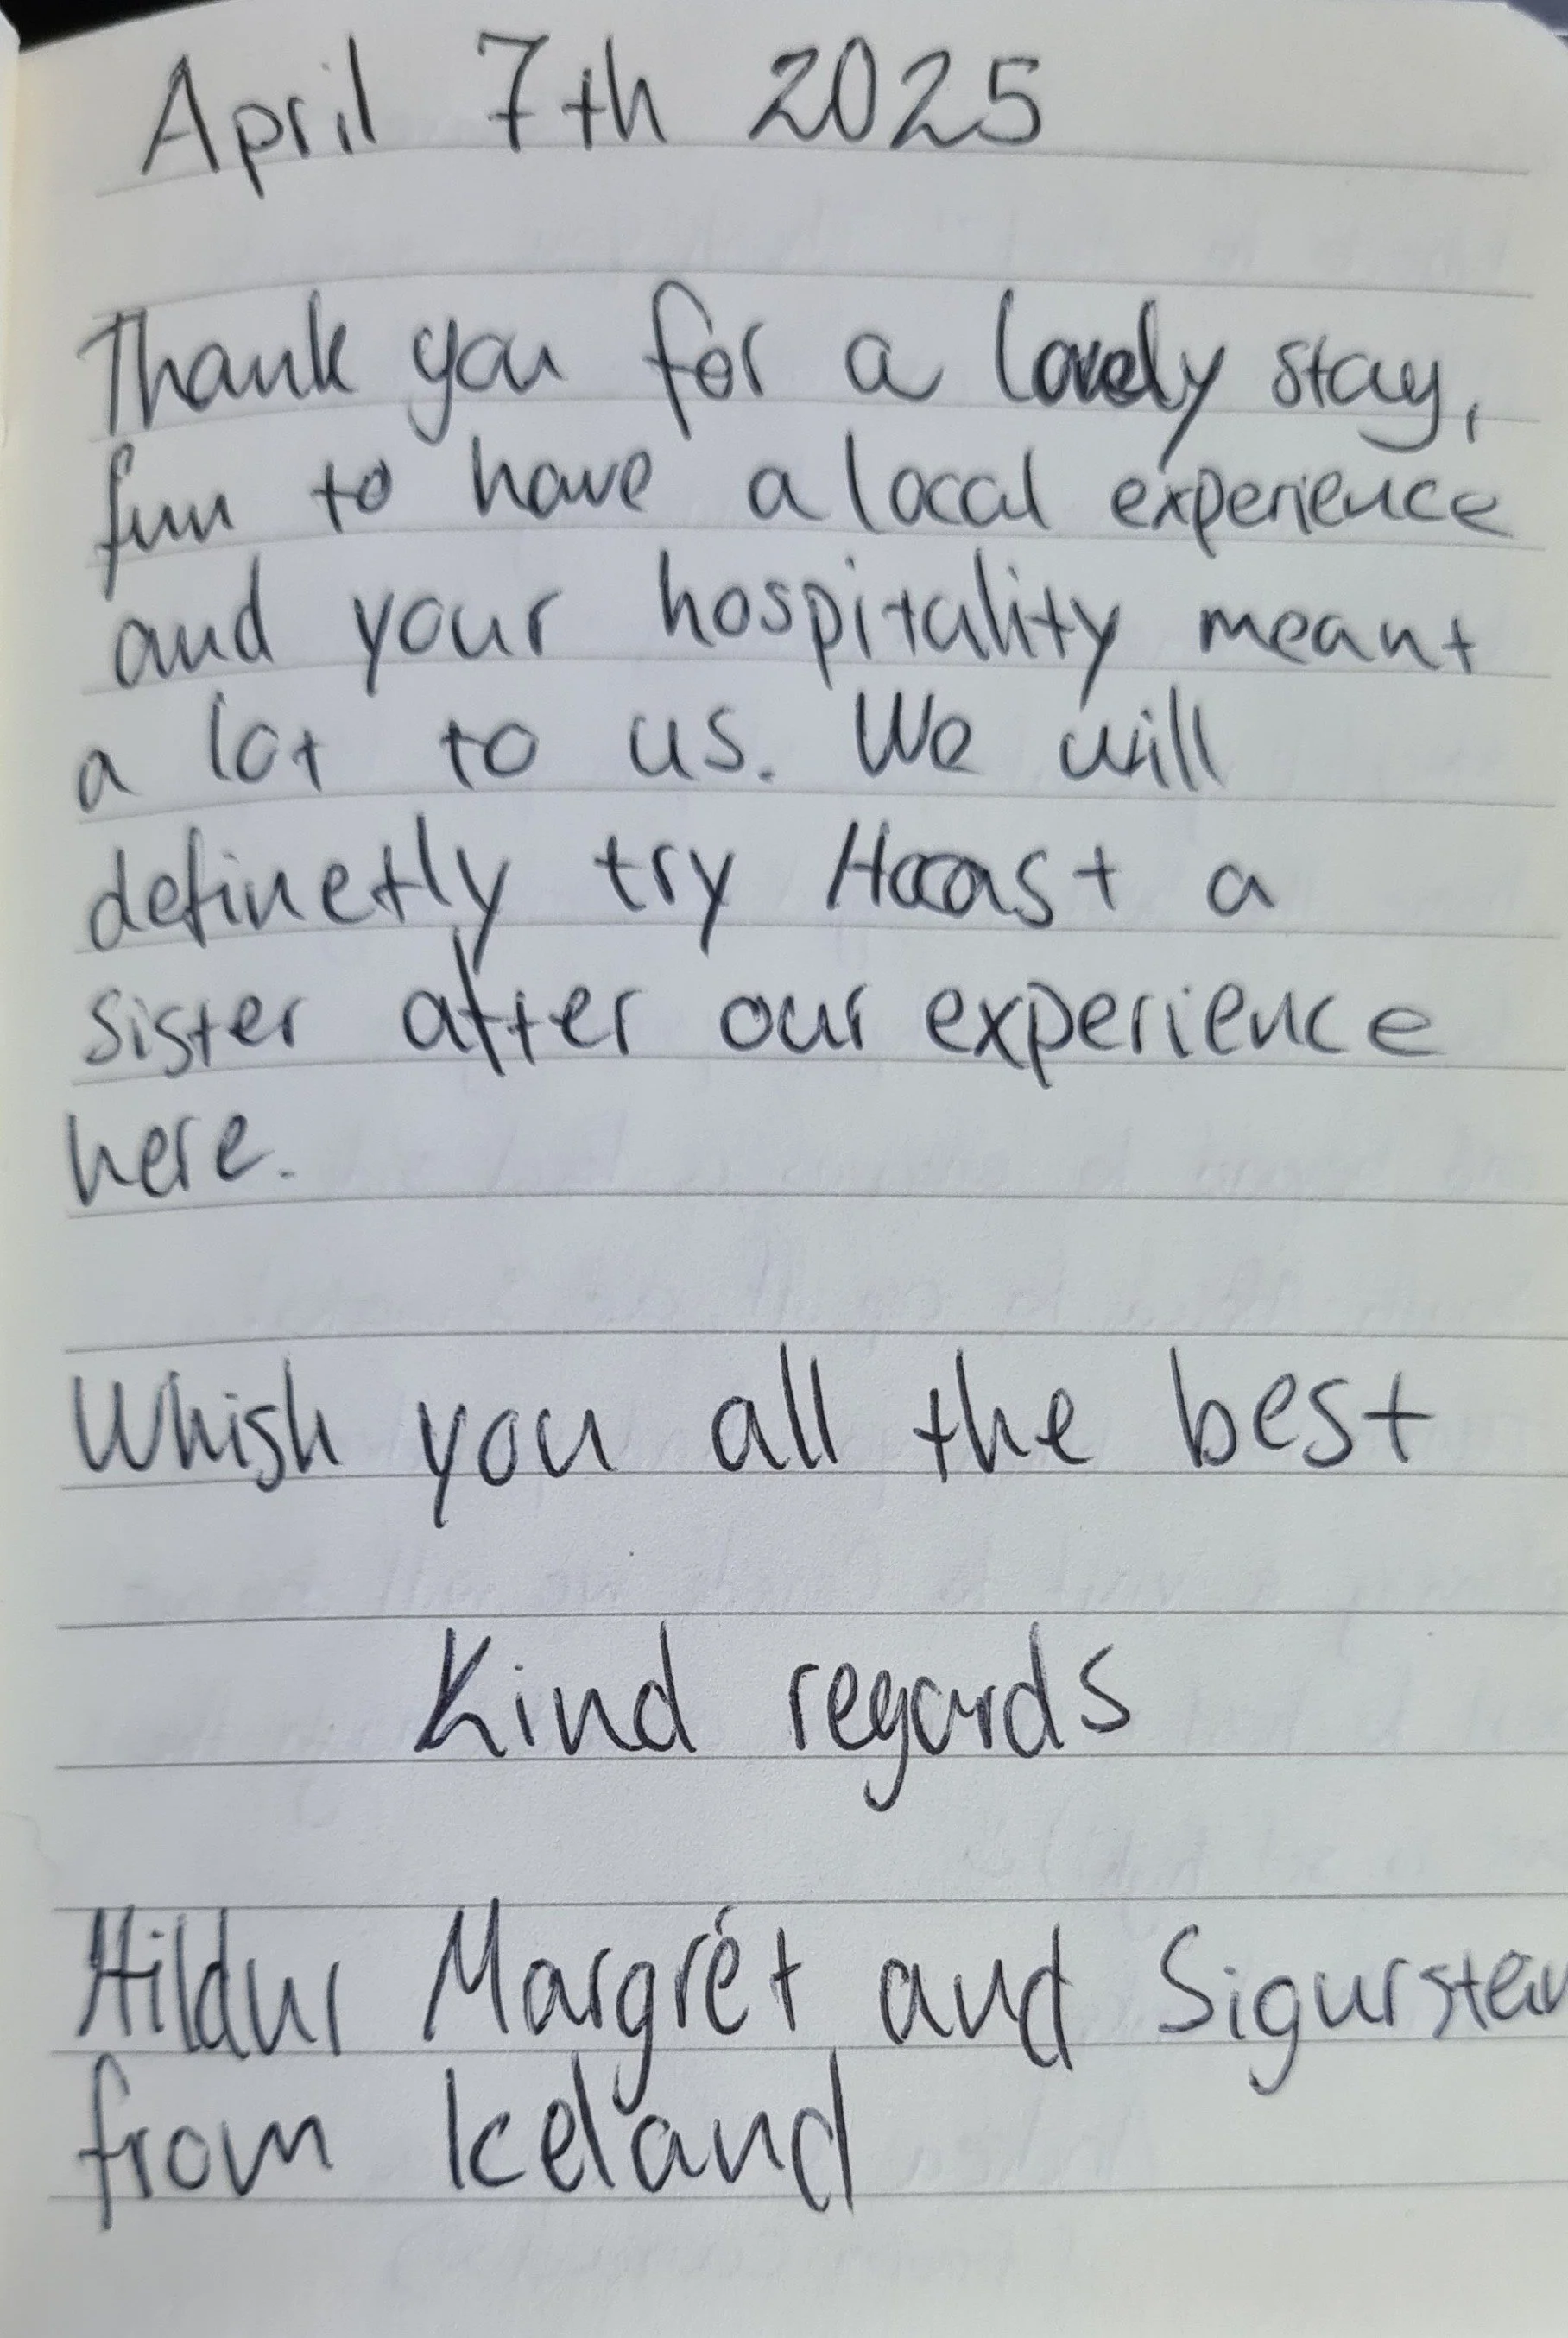 April 7th 2025
Thank you for a lovely stay,
fun to have a local experience
and your hospitality meant
a lot to us. We will
definetly try Haast a
sister after our experience
here.
Whish you all the best
Kind regards
Hildur Margrét and
from Iceland